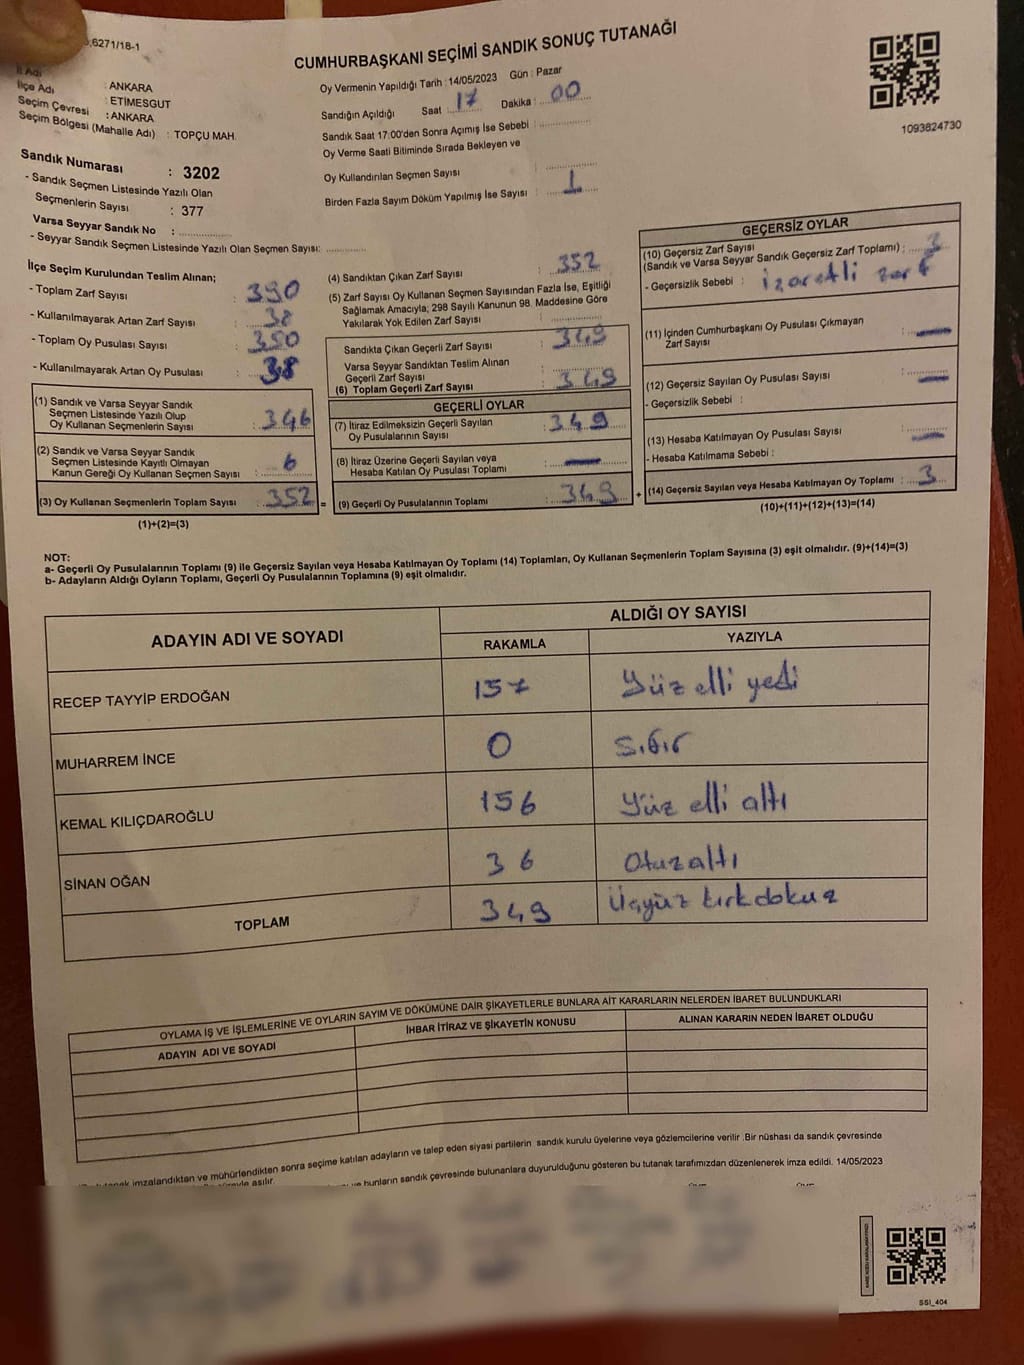 6271/18-1
CUMHURBAŞKANI SEÇİMİ SANDIK SONUÇ TUTANAĞI
İl Adı : ANKARA
İlçe Adı : ETİMESGUT
Seçim Çevresi : ANKARA
Seçim Bölgesi (Mahalle Adı) : TOPÇU MAH.
Sandık Numarası : 3202
- Sandık Seçmen Listesinde Yazılı Olan
Seçmenlerin Sayısı : 377
Varsa Seyyar Sandık No :
- Seyyar Sandık Seçmen Listesinde Yazılı Olan Seçmen Sayısı:
Oy Vermenin Yapıldığı Tarih : 14/05/2023 Gün : Pazar
Sandığın Açıldığı Saat : 17 Dakika : 00
Sandık Saat 17:00'den Sonra Açımış İse Sebebi :
Oy Verme Saati Bitiminde Sırada Bekleyen ve
Oy Kullandırılan Seçmen Sayısı :
Birden Fazla Sayım Döküm Yapılmış İse Sayısı : 1
1093824730
İlçe Seçim Kurulundan Teslim Alınan;
- Toplam Zarf Sayısı : 390
- Kullanılmayarak Artan Zarf Sayısı : 38
- Toplam Oy Pusulası Sayısı :
- Kullanılmayarak Artan Oy Pusulası : 38
(1) Sandık ve Varsa Seyyar Sandık
Seçmen Listesinde Yazılı Olup
Oy Kullanan Seçmenlerin Sayısı : 346
(2) Sandık ve Varsa Seyyar Sandık
Seçmen Listesinde Kayıtlı Olmayan
Kanun Gereği Oy Kullanan Seçmen Sayısı : 6
(3) Oy Kullanan Seçmenlerin Toplam Sayısı : 352 =
(1)+(2)=(3)
(4) Sandıktan Çıkan Zarf Sayısı : 352
(5) Zarf Sayısı Oy Kullanan Seçmen Sayısından Fazla İse, Eşitliği
Sağlamak Amacıyla; 298 Sayılı Kanunun 98. Maddesine Göre
Yakılarak Yok Edilen Zarf Sayısı :
Sandıkta Çıkan Geçerli Zarf Sayısı : 349
Varsa Seyyar Sandıktan Teslim Alınan
Geçerli Zarf Sayısı
(6) Toplam Geçerli Zarf Sayısı : 349
GEÇERLİ OYLAR
(7) İtiraz Edilmeksizin Geçerli Sayılan
Oy Pusulalarının Sayısı : 349
(8) İtiraz Üzerine Geçerli Sayılan veya
Hesaba Katılan Oy Pusulası Toplamı : —
(9) Geçerli Oy Pusulalarının Toplamı : 349 +
GEÇERSİZ OYLAR
(10) Geçersiz Zarf Sayısı
(Sandık ve Varsa Seyyar Sandık Geçersiz Zarf Toplamı) : 3
- Geçersizlik Sebebi : İzaretli zarf
(11) İçinden Cumhurbaşkanı Oy Pusulası Çıkmayan
Zarf Sayısı : —
(12) Geçersiz Sayılan Oy Pusulası Sayısı : —
- Geçersizlik Sebebi :
(13) Hesaba Katılmayan Oy Pusulası Sayısı : —
- Hesaba Katılmama Sebebi :
(14) Geçersiz Sayılan veya Hesaba Katılmayan Oy Toplamı : 3
(10)+(11)+(12)+(13)=(14)
NOT:
a- Geçerli Oy Pusulalarının Toplamı (9) ile Geçersiz Sayılan veya Hesaba Katılmayan Oy Toplamı (14) Toplamları, Oy Kullanan Seçmenlerin Toplam Sayısına (3) eşit olmalıdır. (9)+(14)=(3)
b- Adayların Aldığı Oyların Toplamı, Geçerli Oy Pusulalarının Toplamına (9) eşit olmalıdır.
ADAYIN ADI VE SOYADI ALDIĞI OY SAYISI
RAKAMLA YAZIYLA
RECEP TAYYİP ERDOĞAN 157 Yüz elli yedi
MUHARREM İNCE 0 Sıfır
KEMAL KILIÇDAROĞLU 156 Yüz elli altı
SİNAN OĞAN 36 Otuzaltı
TOPLAM 349 Üçyüz kırkdokuz
OYLAMA İŞ VE İŞLEMLERİNE VE OYLARIN SAYIM VE DÖKÜMÜNE DAİR ŞİKAYETLERLE BUNLARA AİT KARARLARIN NELERDEN İBARET BULUNDUKLARI
ADAYIN ADI VE SOYADI İHBAR İTİRAZ VE ŞİKAYETİN KONUSU ALINAN KARARIN NEDEN İBARET OLDUĞU
imzalandıktan ve mühürlendikten sonra seçime katılan adayların ve talep eden siyasi partilerin sandık kurulu üyelerine veya gözlemcilerine verilir .Bir nüshası da sandık çevresinde
asılır. bunların sandık çevresinde bulunanlara duyurulduğunu gösteren bu tutanak tarafımızdan düzenlenerek imza edildi. 14/05/2023
SSI_404